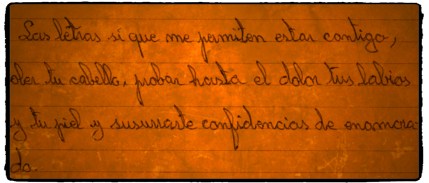 Las letras si que me permiten estar contigo,
oler tu cabello, probar hasta el dolor tus labios
y tu piel y susurrarte confidencias de enamora
da.